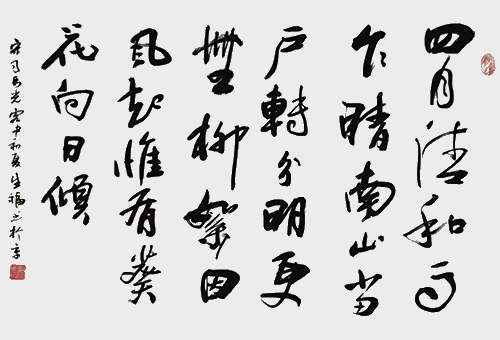 四月清和雨
乍晴南山当
户轉分明更
無柳絮因
风起惟有葵
花向日傾
宋司马光客中初夏生福书於京